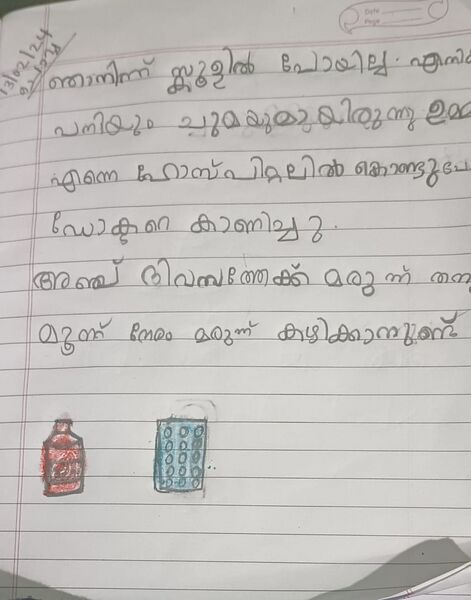 Date
Page
13/02/24
ഞാനിന്ന് സ്കൂളിൽ പോയില്ല. എനിക്
പനിയും ചുമയുമായിരുന്നു
എന്നെ ഹോസ്പിറ്റലിൽ കൊണ്ടുപോ
ഡോക്ടറെ കാണിച്ചു.
അഞ്ച് ദിവസത്തേക്ക് മരുന്ന് തന്ന
മൂന്ന് നേരം മരുന്ന് കഴിക്കാനുണ്ട്